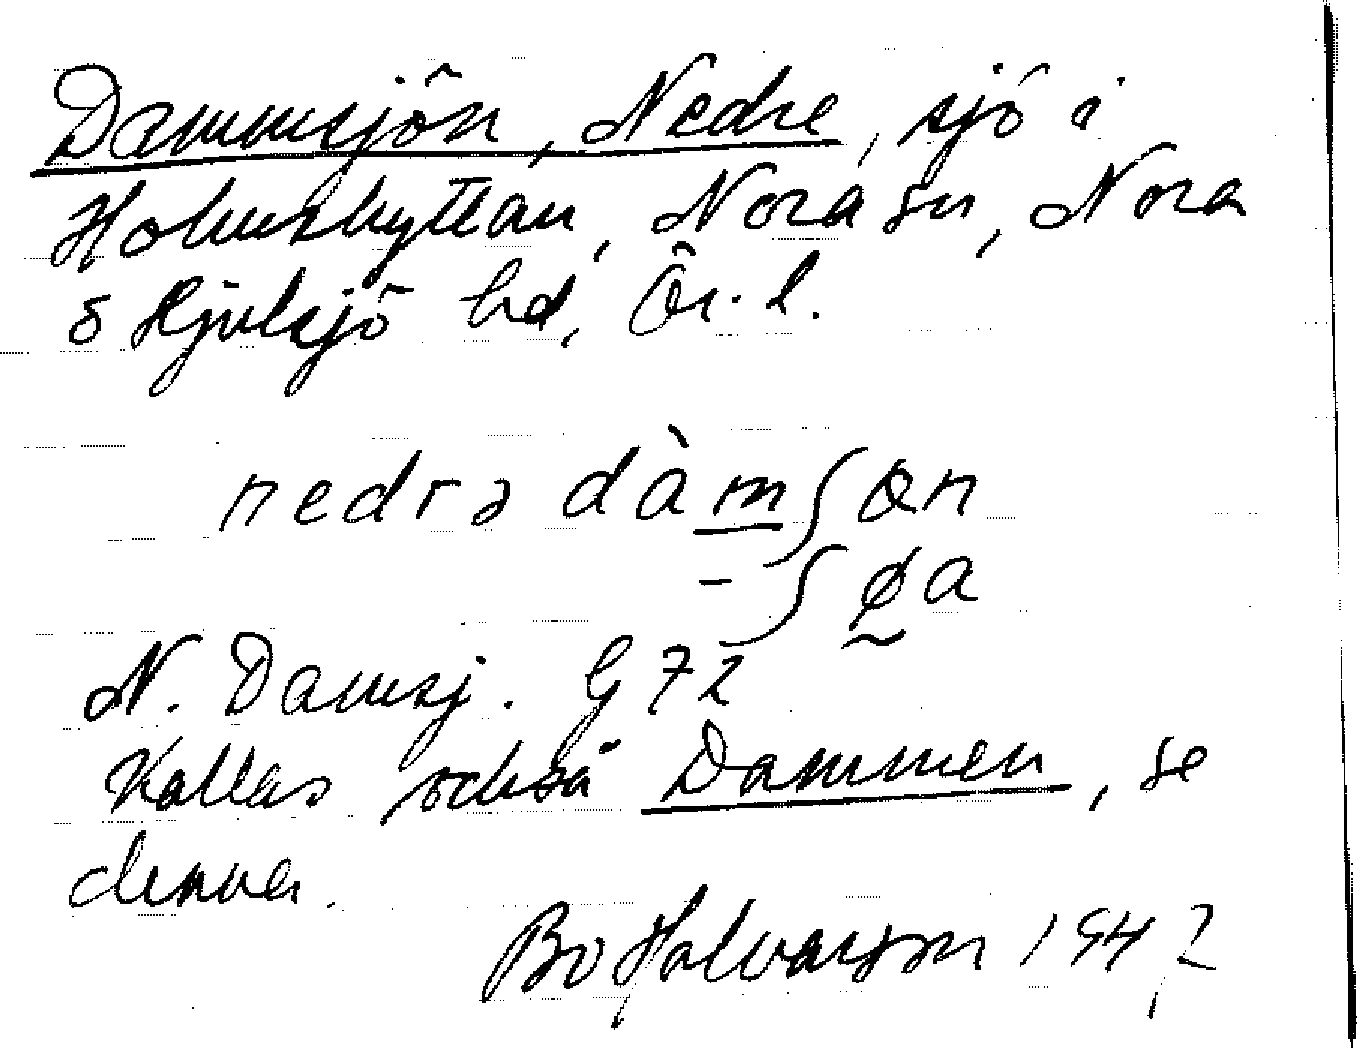 Dammsjön, Nedre, sjö i
Holmshyttan, Nora sn, Nora
o Hjulsjö hd, Ör. l.
nedrə dàmʃøn
- ʃøa
N. Damsj. G 72
Kallas också Dammen, se
denna.
Bo Halvarson 194?